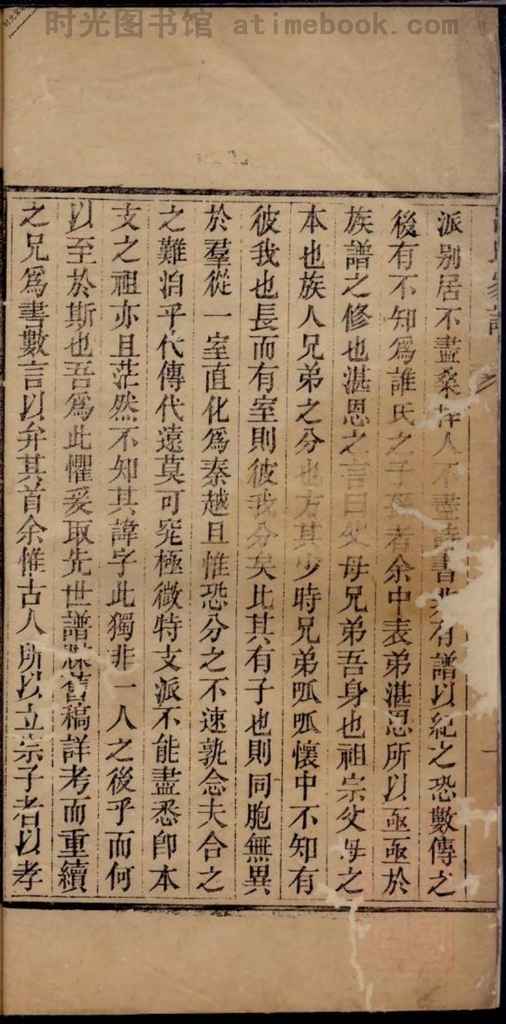 时光图书馆 atimebook.com
派别居不盡桑梓人不盡詩書非有譜以紀之恐數傳之
後有不知為誰氏之子孫者余中表弟湛恩所以亟亟於
族譜之修也湛恩之言曰父母兄弟吾身也祖宗父母之
本也族人兄弟之分也方其少時兄弟呱呱懷中不知有
彼我也長而有室則彼我分矣比其有子也則同胞無異
於羣從一室直化為秦越且惟恐分之不速孰念夫合之
之難洎乎代傳代遠莫可究極微特支派不能盡悉卽本
支之祖亦且茫然不知其諱字此獨非一人之後乎而何
以至於斯也吾為此懼爰取先世譜牒舊稿詳考而重續
之兄為書數言以弁其首余惟古人所以立宗子者以孝